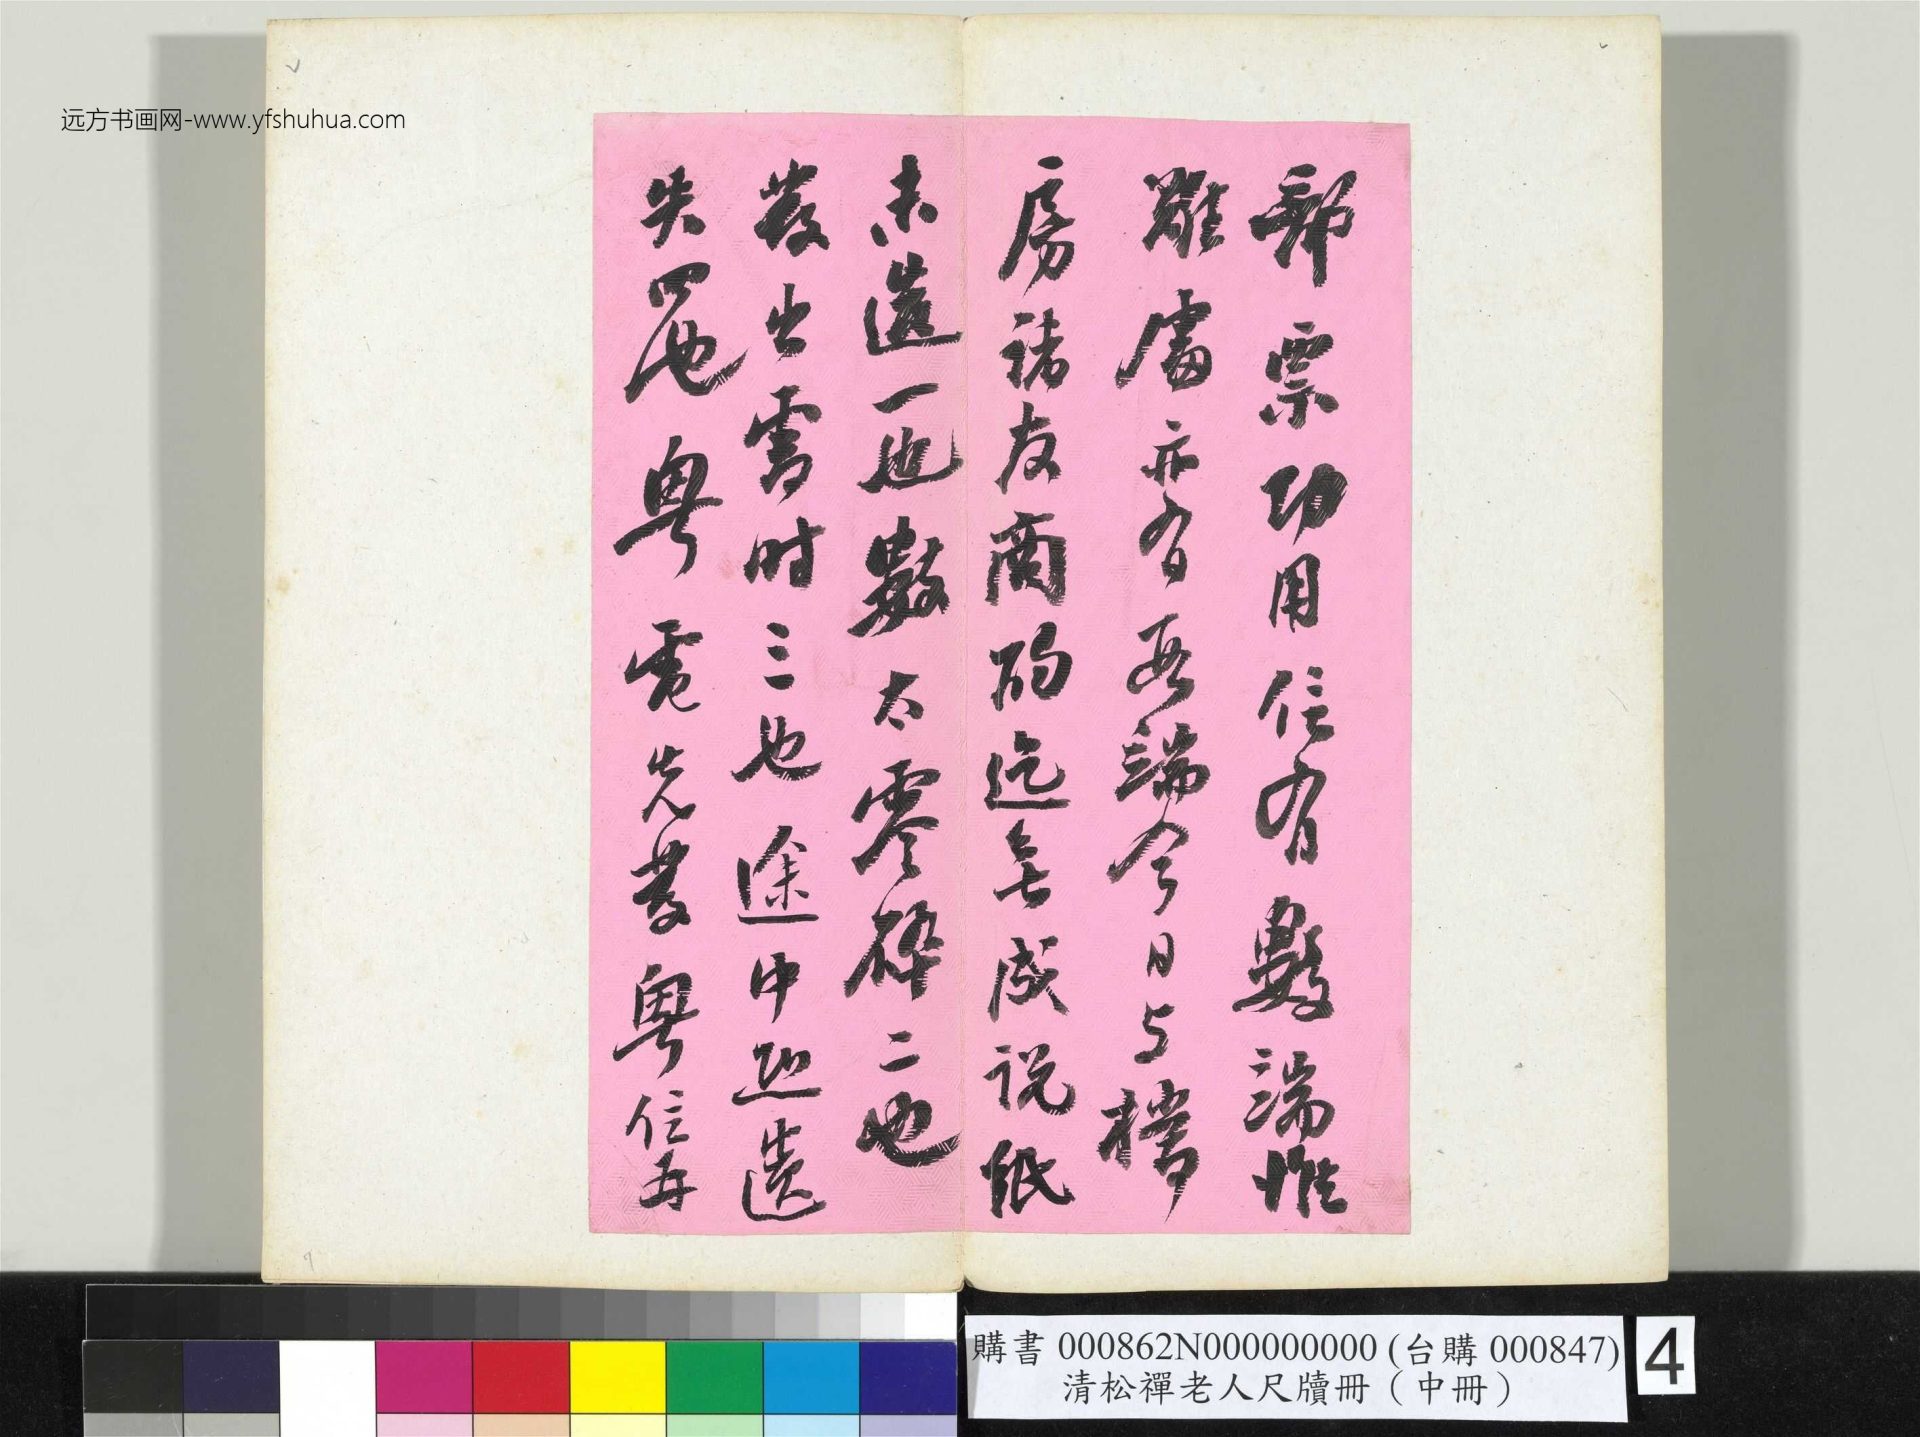 远方书画网-www.yfshuhua.com
部票功用信有數端惟
難處亦有数端今日与樵
房諸友商酌迄無成说紙
未遑一也數太零碎二也
發出需时三也途中恐遗
失四也粤電先發粤信再
購書 000862N000000000 (台購 000847)
清松禪老人尺牘冊（中冊）
4